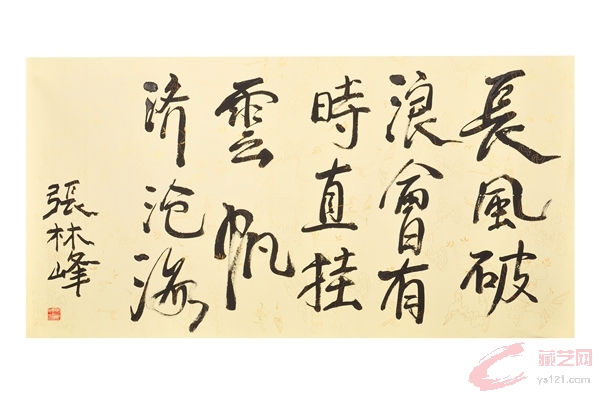 長風破
浪會有
時直挂
雲帆
济沧海
張林峰
藏艺网
ys121.com